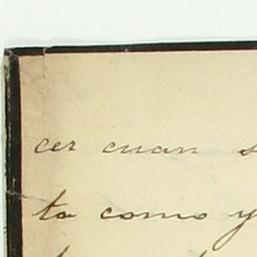 cer cuan s
ta como y